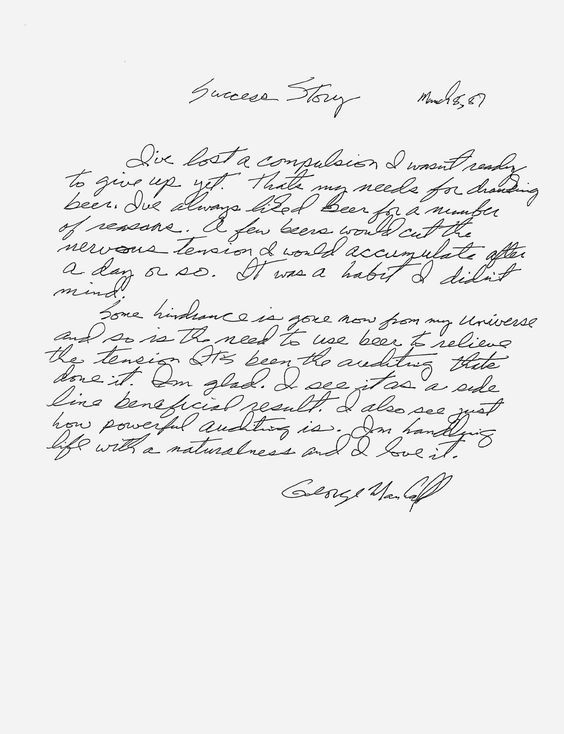 Success Story March 3, 87
I've lost a compulsion I wasn't ready
to give up yet. Thats my needs for drinking
beer. I've always liked Beer for a number
of reasons. A few beers would cut the
nervous tension I would accumulate after
a day or so. It was a habit I didn't
mind.
Some hindrance is gone now from my Universe
and so is the need to use beer to relieve
the tension. It's been the auditing thats
done it. I'm glad. I see it as a side
line beneficial result. I also see just
how powerful auditing is. I'm handling
life with a naturalness and I love it.
George